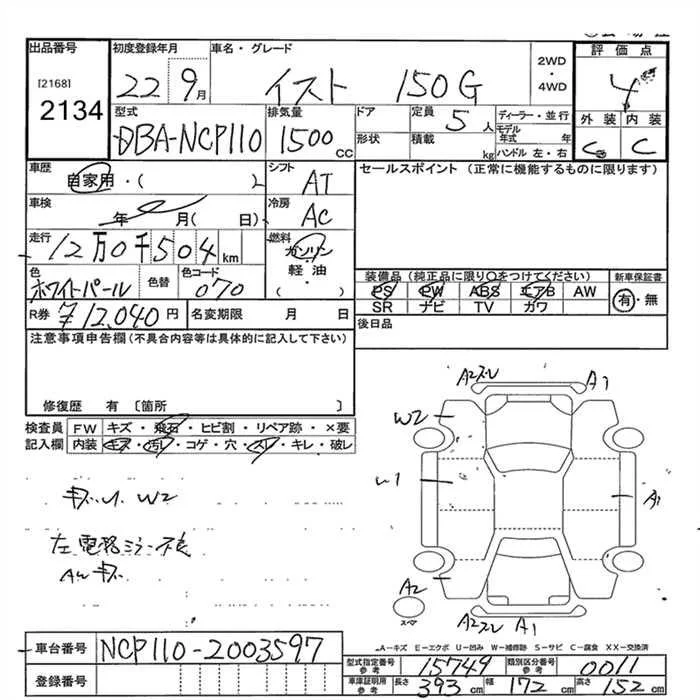 出品番号 初度登録年月 車名・グレード 2WD・4WD 評価点
[2168]
2134 22 9月 イスト 150G 4
型式 排気量 ドア 定員 ディーラー・並行 外装 内装
DBA-NCP110 1500cc 5人 モデル年式 年 C C
形状 積載 kg ハンドル 左・右
車歴 シフト セールスポイント (正常に機能するものに限ります)
自家用・( ) AT
車検 冷房
年 月( 日) AC
走行 燃料
12万0千504km ガソリン
色 色替 色コード 軽油
ホワイトパール 070 ( )
装備品(純正品に限り○をつけてください) 新車保証書
PS PW ABS エアB AW 有・無
SR ナビ TV カワ
R券 ¥12,040円 名変期限 月 日 後日品
注意事項申告欄(不具合内容等は具体的に記入して下さい)
修復歴 有 〔箇所 〕
検査員 FW キズ・飛石・ヒビ割・リペア跡・×要
記入欄 内装 キズ・汚レ・コゲ・穴・スレ・キレ・破レ
A2スレ A1
W2
U1 A1
W2
左電格ミラー不良
AWキズ
A2
スペア
A2スレ A1
A-キズ E-エクボ U-凹み W-補修跡 S-サビ C-腐食 XX-交換済
車台番号 NCP110-2003597
登録番号
型式指定番号 参考 15749 類別区分番号 参考 0011
車庫証明用 参考 長さ 393cm 幅 172cm 高さ 152cm